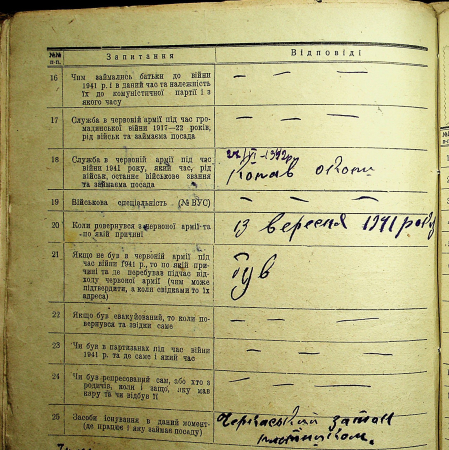 №№ п-п. Запитання Відповіді
16 Чим займались батьки до війни
1941 р. і в даний час та належність
їх до комуністичної партії і з
якого часу — — —
17 Служба в червоній армії під час гро-
мадянської війни 1917—22 років,
рід військ та займаєма посада — — —
18 Служба в червоній армії під час
війни 1941 року, який час, рід
військ, останнє військове звання
та займаєма посада
Копав окопи
19 Військова спеціяльність (№ ВУС) — — —
20 Коли ровернувся з червоної армії та
по якій причині 13 вересня 1941 року
21 Якщо не був в червоній армії під
час війни 1941 р., то по якій при-
чині та де перебував підчас від-
ходу червоної армії (чим може
підтвердити, а коли свідками то їх
адреса) був
22 Якщо був евакуйований, то коли по-
вернувся та звідки саме — — —
23 Чи був в партизанах під час війни
1941 р. та де саме і який час — — —
24 Чи був репресований сам, або хто з
родичів, коли і защо, яку мав
кару та чи відбув її — — —
25 Засоби існування в даний момент-
(де працює і яку займає посаду) Черкаський затон
плотником.